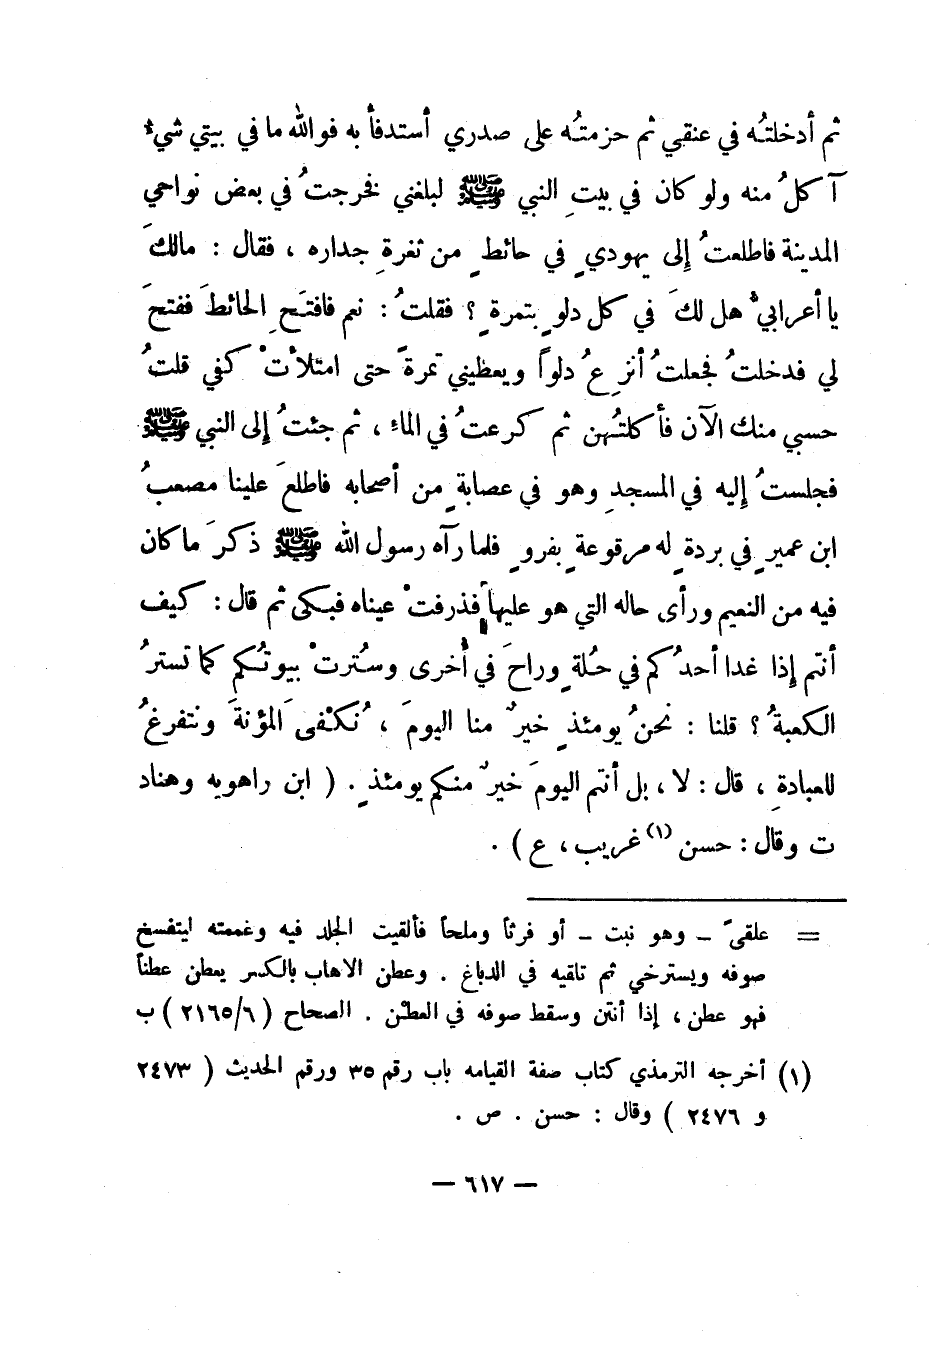 ثم أدخلتُه في عنقي ثم حزمتُه على صدري أستدفأ به فوالله ما في بيتي شيءٌ
آكلُ منه ولو كان في بيتِ النبي ﷺ لبلغني فخرجتُ في بعض نواحي
المدينة فاطلعتُ إلى يهوديٍ في حائطٍ من ثغرةِ جداره ، فقال : مالكَ
يا أعرابيُّ هل لكَ في كل دلوٍ بتمرةٍ ؟ فقلتُ : نعم فافتَحِ الحائطَ ففتحَ
لي فدخلتُ فجعلتُ أنزِعُ دلواً ويعطيني تمرةً حتى امتلأتْ كفي قلتُ
حسبي منك الآن فأكلتُهن ثم كرعتُ في الماء ، ثم جئتُ إلى النبي ﷺ
فجلستُ إليه في المسجدِ وهو في عصابةٍ من أصحابه فاطلعَ علينا مصعبُ
ابن عميرٍ في بردةٍ له مرقوعةٍ بفروٍ فلما رآه رسول الله ﷺ ذكرَ ما كان
فيه من النعيم ورأى حاله التي هو عليها فذرفتْ عيناه فبكى ثم قال : كيف
أنتم إذا غدا أحدُكم في حُلةٍ وراحَ في أُخرى وسُترتْ بيوتُكم كما تسترُ
الكعبةُ ؟ قلنا : نحنُ يومئذٍ خيرٌ منا اليومَ ، نُكْفى المؤنةَ ونتفرغُ
للعبادةِ ، قال : لا ، بل أنتم اليومَ خيرٌ منكم يومئذٍ . ( ابن راهويه وهناد
ت وقال : حسن (١) غريب ، ع ) .
= علقىً ــ وهو نبت ــ أو فرثاً وملحاً فألقيت الجلد فيه وغممته ليتفسخ
صوفه ويسترخي ثم تلقيه في الدباغ . وعطن الاهاب بالكسر يعطن عطناً
فهو عطن ، إذا أنتن وسقط صوفه في العطْن . الصحاح ( ٢١٦٥/٦ ) ب
(١) أخرجه الترمذي كتاب صفة القيامه باب رقم ٣٥ ورقم الحديث ( ٢٤٧٣
و ٢٤٧٦ ) وقال : حسن . ص .
— ٦١٧ —